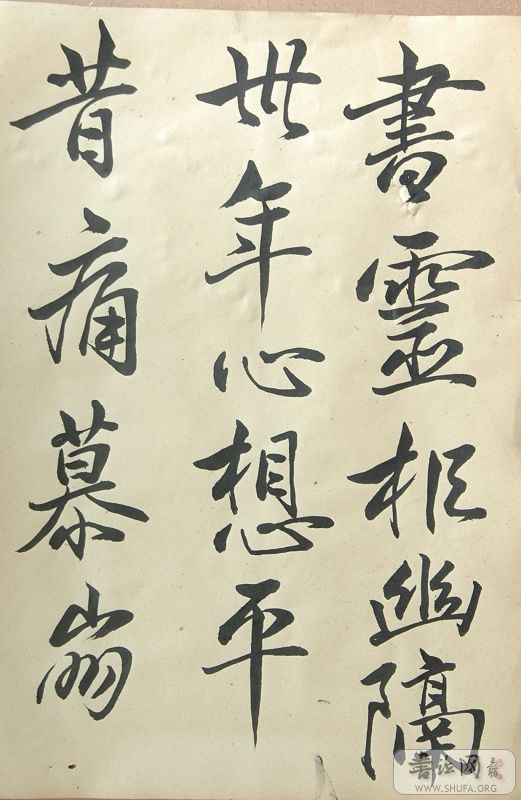 書靈柩幽隔
卅年心想平
昔痛慕崩
書法网
WWW.SHUFA.ORG